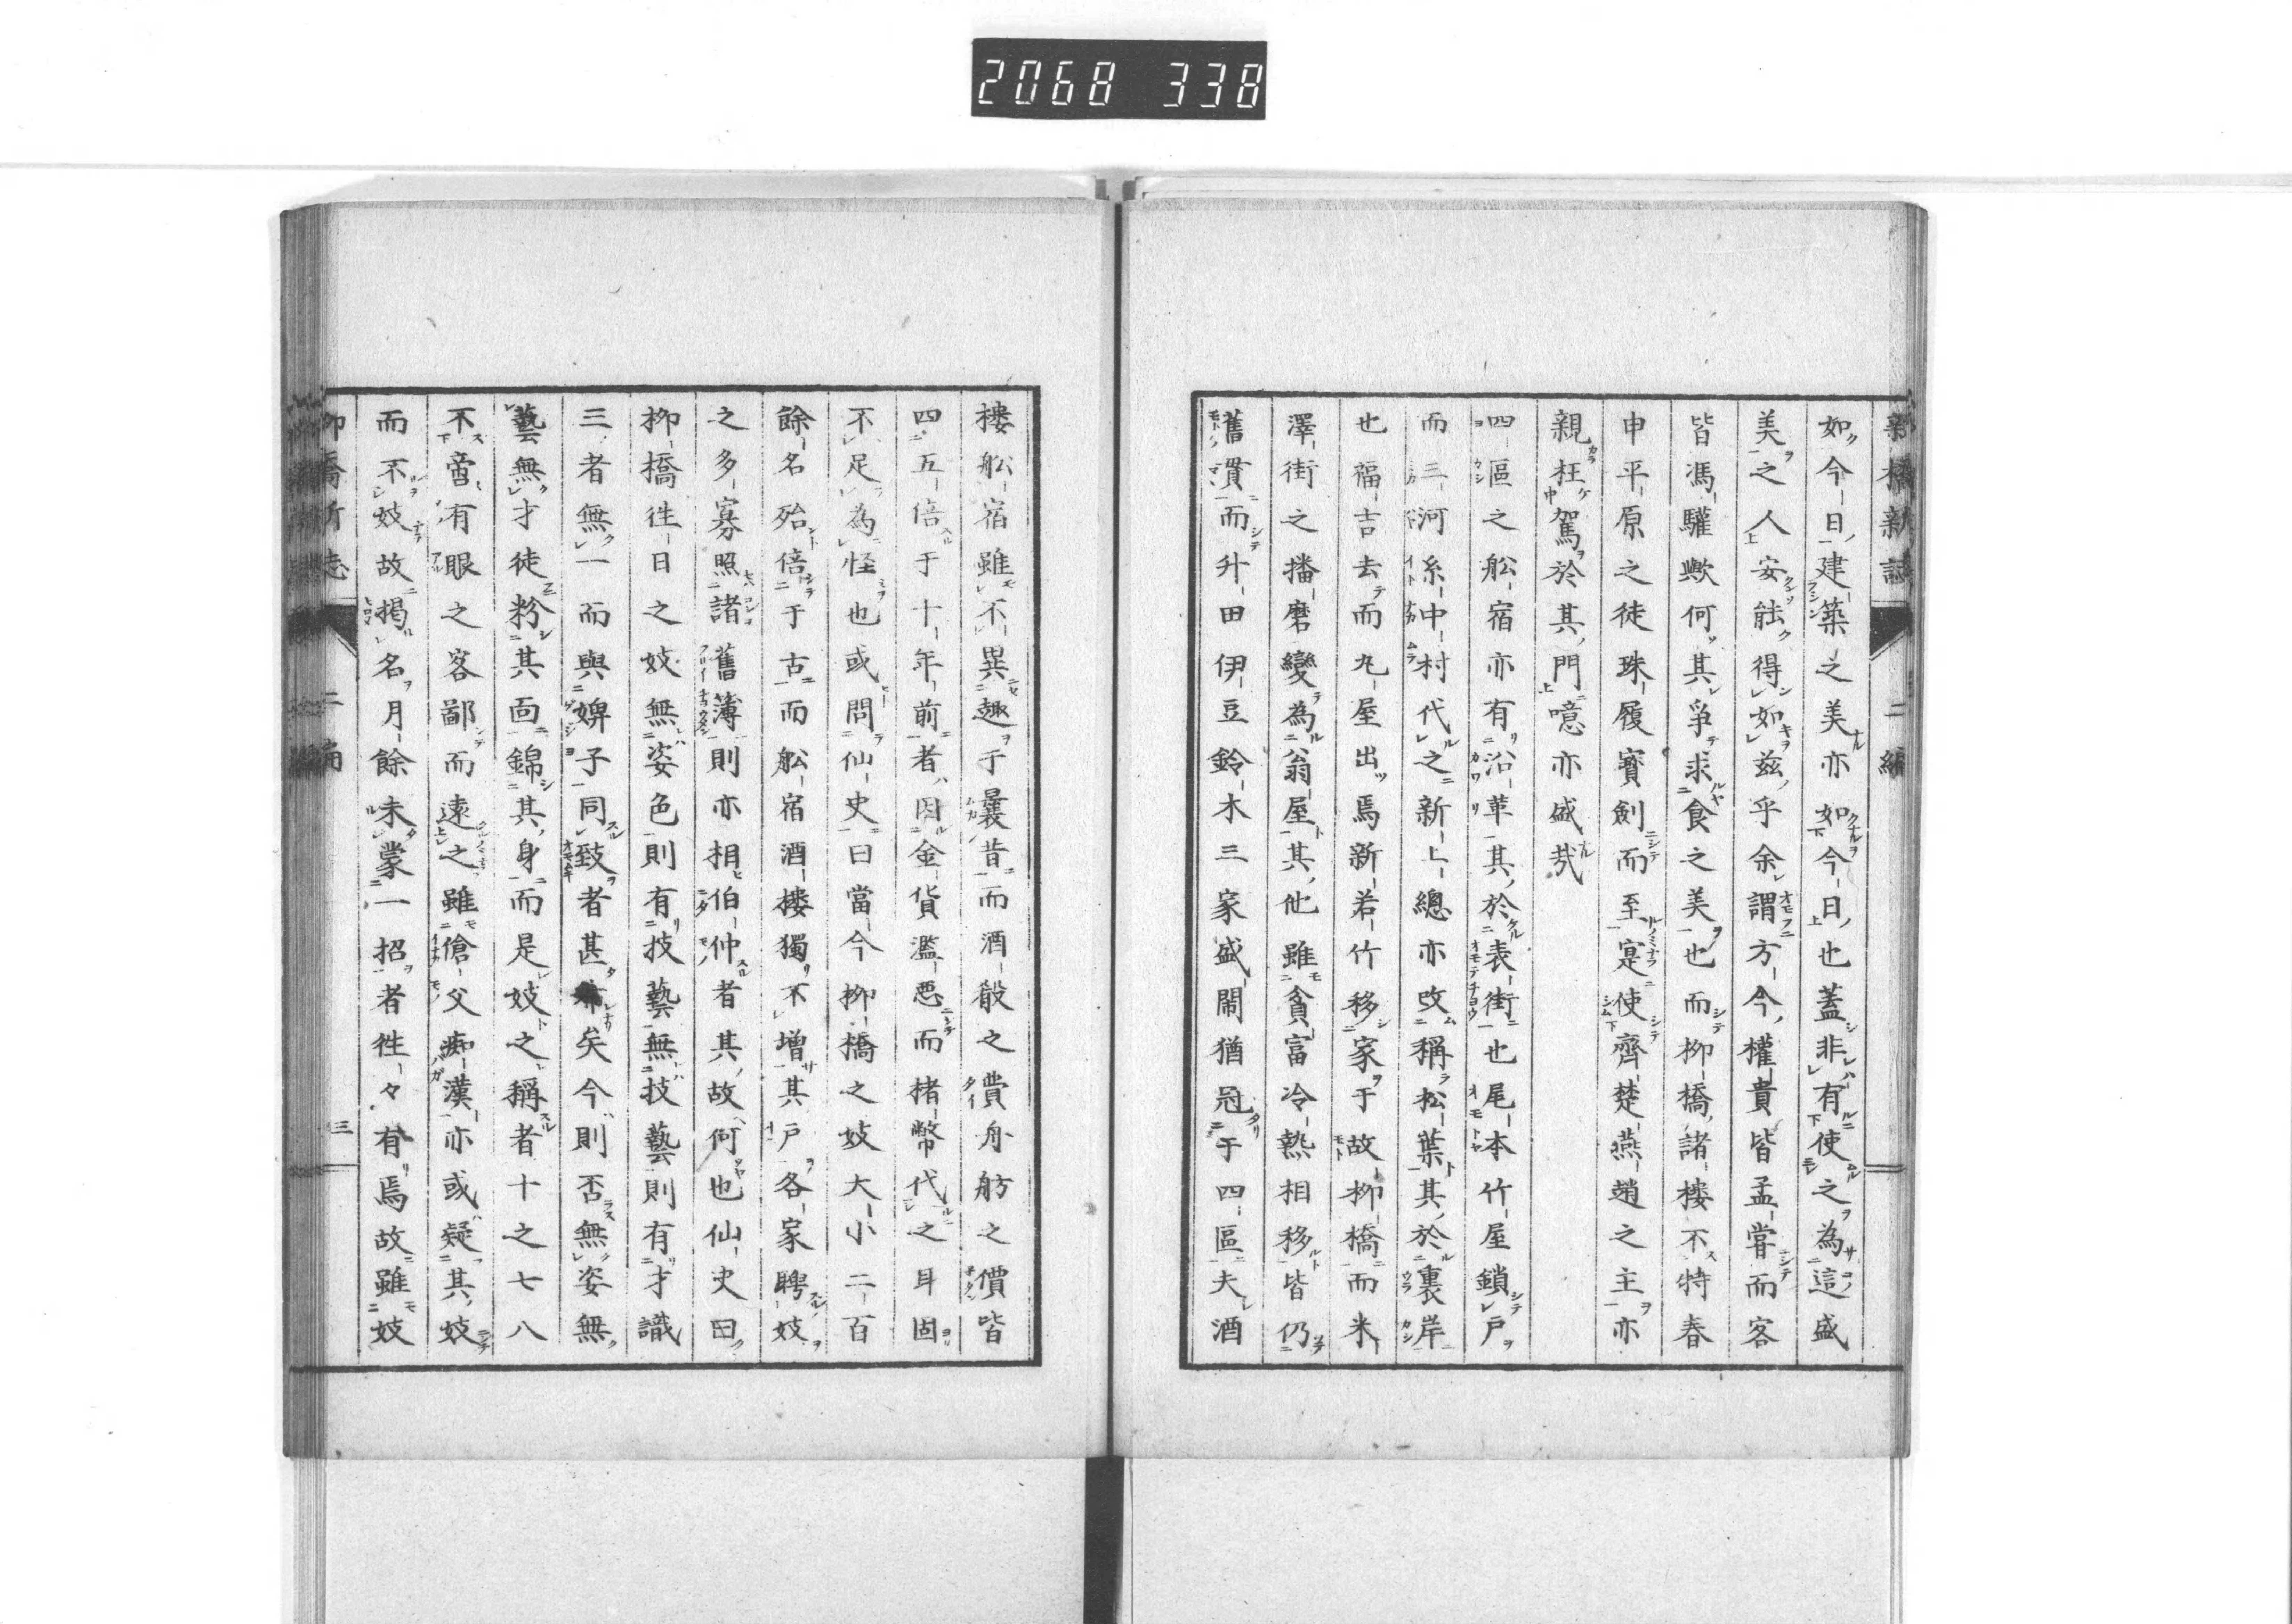 2068 338
如今日建築之美亦如今日也蓋非有使之為這盛
美之人安能得如茲乎余謂方今權貴皆孟嘗而客
皆馮驩歟何其爭求食之美也而柳橋諸樓不特春
申平原之徒珠履寶劍而至寔使齊楚燕趙之主亦
親枉駕於其門噫亦盛哉
四區之舩宿亦有沿革其於表街也尾本竹屋鎖戶
而三河糸中村代之新上總亦改稱松葉其於裏岸
也福吉去而丸屋出焉新若竹移家于故柳橋而米
澤街之播磨變為翁屋其他雖貧富冷熱相移皆仍
舊貫而升田伊豆鈴木三家盛鬧猶冠于四區夫酒
樓舩宿雖不異趣于曩昔而酒殽之費舟舫之價皆
四五倍于十年前者因金貨濫惡而楮幣代之耳固
不足為怪也或問仙史曰當今柳橋之妓大小二百
餘名殆倍于古而舩宿酒樓獨不增其戶各家聘妓
之多寡照諸舊簿則亦相伯仲者其故何也仙史曰
柳橋往日之妓無姿色則有技藝無技藝則有才識
三者無一而與婢子同致者甚希矣今則否無姿無
藝無才徒粉其面錦其身而是妓之稱者十之七八
不啻有眼之客鄙而遠之雖傖父痴漢亦或疑其妓
而不妓故揭名月餘未蒙一招者徃々有焉故雖妓
柳橋新誌 二編 三